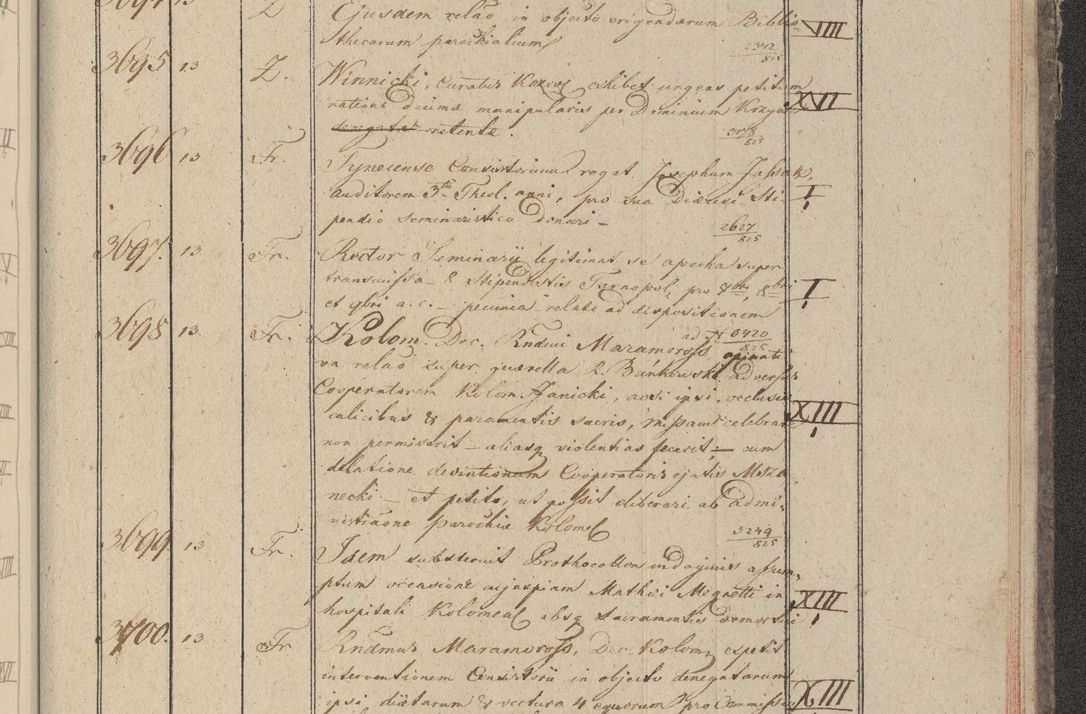 3694 13 Z Ejusdem relao in objecto erigendarum Biblio
thecarum parochialium VIII
2342/825
3695 13 Z. Winnicki, Curatus exhibet urgens petitum
ratione Decima manipularis per Dominium
denegatae retenta. XVI
825
3696 13 Fr. Tynecense Consistorium rogat Josephum
auditorem 3tii Theol. anni, pro sua Diaecesi Sti-
pendio Seminaristico donari I
2627/825
3697. 13 Fr. Rector Seminarii legitimat se apocha super
transmissa & Stipendistis Tarnopol. pro 7bri, 8bri
et 9bri a. c. pecunia relate ad dispositionem I
ad N 3420/825
3698 13 Fr. Kolom. Dec. Rndmi Maramoross opinati
va relao super querella R Bańkowski adversus
Cooperatorem Kolom. Janicki, acsi ipsi, occlusis
calicibus & paramentis sacris, missam celebrare
non permiserit – aliasq violentias fecerit – cum
delatione deviationum Cooperatoris ejatis
necki – et petito, ut possit liberari ab admi-
nistraone parochiae Kolom XIII
3249/825
3699 13 Fr. Idem substernit Prothocollon indaginis assum-
ptum occasione Mathaei in
hospitali Kolomeae absq Sacramentis demortui XIII
3700. 13 Fr. Rndmus Maramoross, Dec. Kolom, expetit
interventionem Consistorii in objecto denegatarum
ipsi diaetarum & vectura 4 equorum pro Commissio XIII